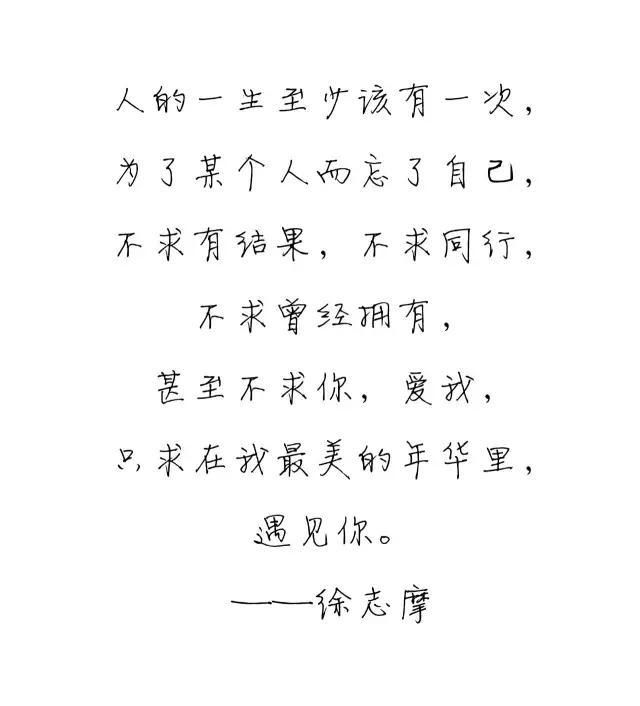 人的一生至少该有一次，
为了某个人而忘了自己，
不求有结果，不求同行，
不求曾经拥有，
甚至不求你，爱我，
只求在我最美的年华里，
遇见你。
——徐志摩